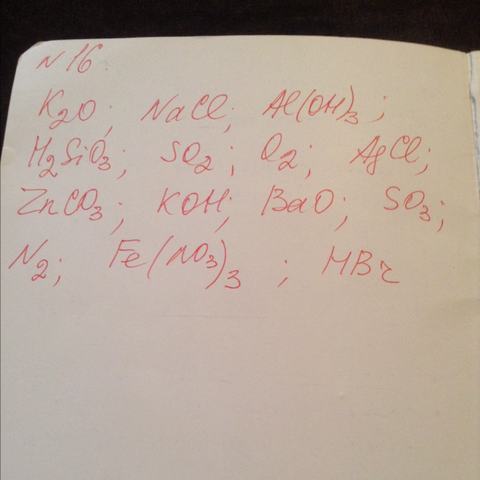 N16.
K₂O; NaCl; Al(OH)₃;
H₂SiO₃; SO₂; O₂; AgCl;
ZnCO₃; KOH; BaO; SO₃;
N₂; Fe(NO₃)₃; HBr